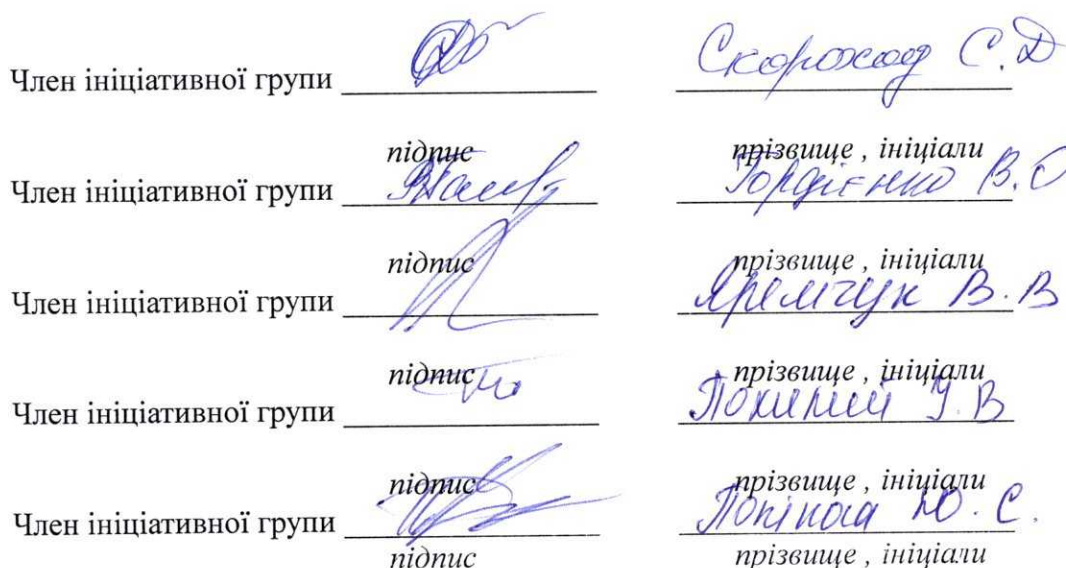 Член ініціативної групи Скороход С.Д
підпис прізвище , ініціали
Член ініціативної групи Гордієнко В.О
підпис прізвище , ініціали
Член ініціативної групи Яремчук В.В
підпис прізвище , ініціали
Член ініціативної групи У.В
підпис прізвище , ініціали
Член ініціативної групи Ю.С.
підпис прізвище , ініціали